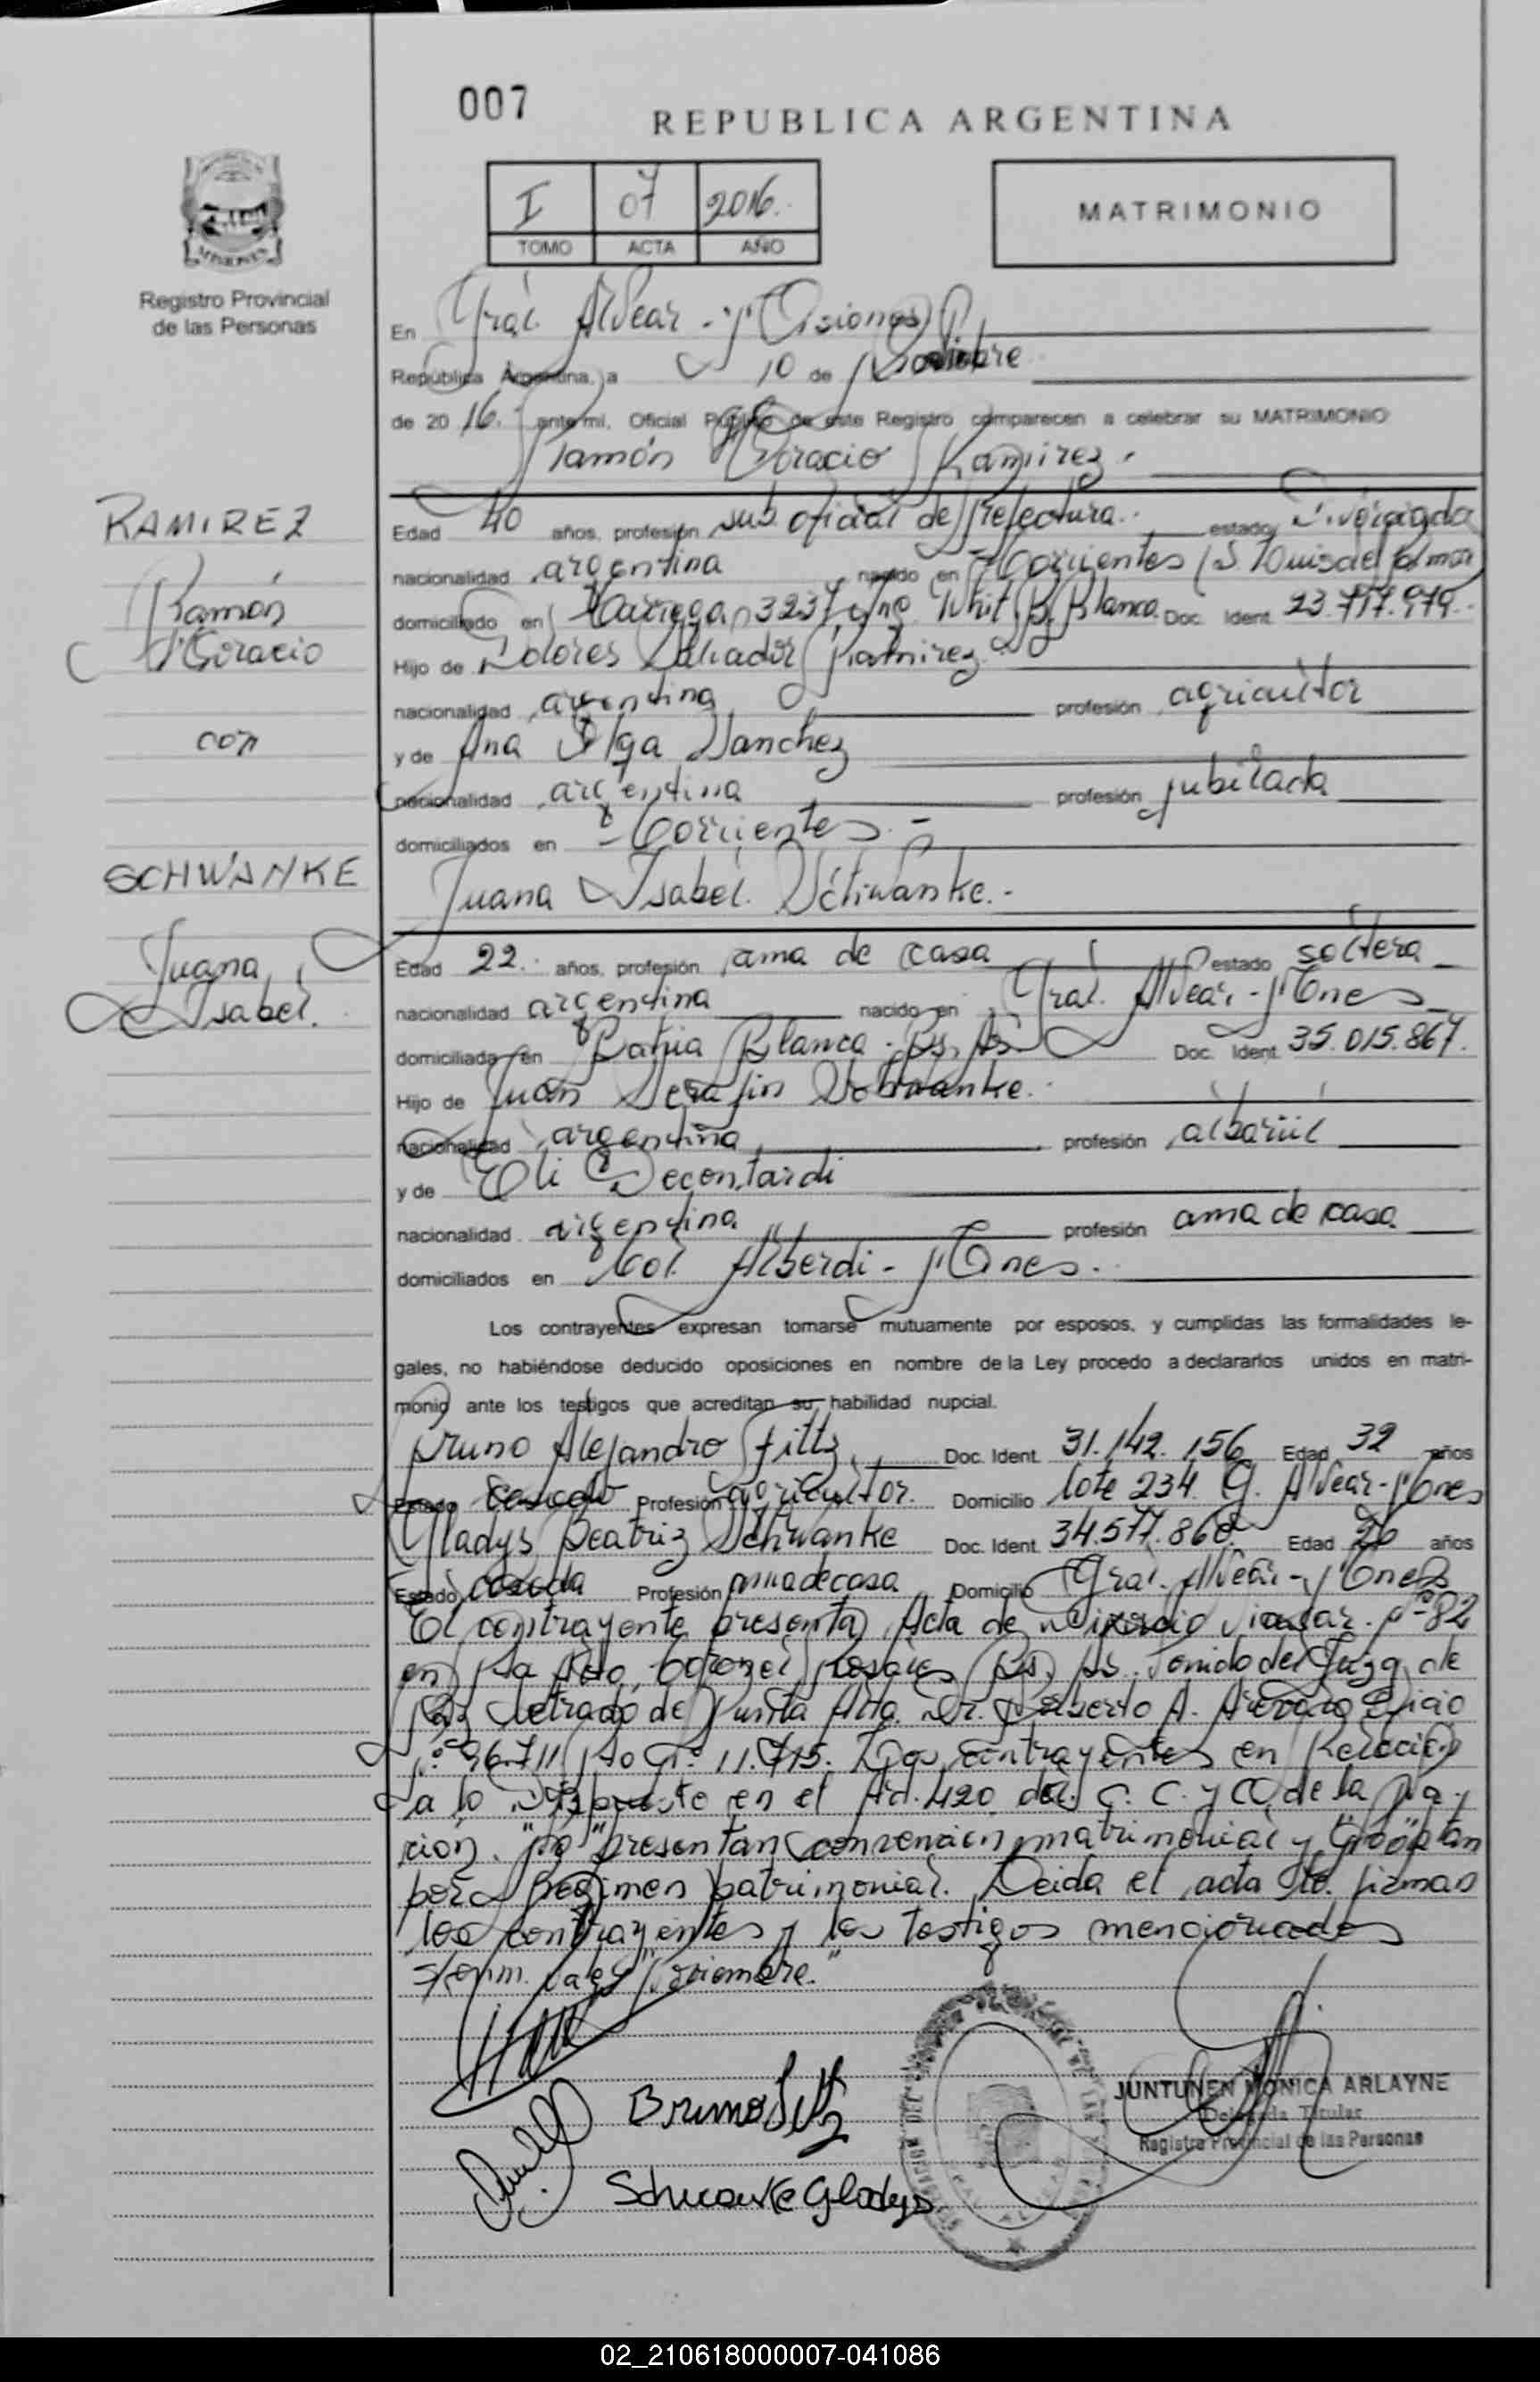 007
REPUBLICA ARGENTINA
I 07 2016.
TOMO ACTA AÑO
MATRIMONIO
MISIONES
Registro Provincial
de las Personas
En Gral. Alvear - Misiones
República Argentina, a 10 de
de 2016. ante mi, Oficial Público de este Registro comparecen a celebrar su MATRIMONIO
Ramón Horacio Ramirez.
RAMIREZ
Ramón
Horacio
con
SCHWANKE
Juana
Isabel.
Edad 40 años, profesión sub. oficial de prefectura. estado
nacionalidad argentina nacido en Corrientes (S. Luis del Palmar
domiciliado en 3237 Ing. Whit B. Blanca Doc. Ident. 23.717.979.
Hijo de Dolores Salvador Ramirez
nacionalidad argentina profesión agricultor
y de Ana Olga Sanchez
nacionalidad argentina profesión jubilada
domiciliados en Corrientes.-
Juana Isabel Schwanke.-
Edad 22. años, profesión ama de casa estado soltera
nacionalidad argentina nacido en Gral. Alvear - Mnes
domiciliado en Bahia Blanca - Bs. As. Doc. Ident. 35.015.867.
Hijo de Juan Serafin Schwanke.
nacionalidad argentina profesión albañil
y de Eli Decontardi
nacionalidad argentina profesión ama de casa
domiciliados en Col. Alberdi - Mnes.
Los contrayentes expresan tomarse mutuamente por esposos, y cumplidas las formalidades le-
gales, no habiéndose deducido oposiciones en nombre de la Ley procedo a declararlos unidos en matri-
monio ante los testigos que acreditan su habilidad nupcial.
Bruno Alejandro Filtz Doc. Ident. 31.142.156 Edad 32 años
Estado casado Profesión agricultor. Domicilio lote 234. G. Alvear - Mnes
Gladys Beatriz Schwanke Doc. Ident. 34.577.868 Edad 26 años
Estado casada Profesión ama de casa Domicilio Gral. Alvear - Mnes
El contrayente presenta Acta de Divorcio Nº 82
en Coronel Rosales Bs. As. del Juzg. de
Paz Letrado de Punta Alta Dr. A. Oficio
11.715. Los contrayentes en Relación
a lo Dispuesto en el Art. 420 del C. C. y CO, de la Na-
cion. "No" presentan convencion matrimonial y "no" optan
por Regimen patrimonial. Leida el acta firman
los contrayentes y los testigos mencionados
Bruno Filtz
Schwanke Gladys
JUNTUNEN MONICA ARLAYNE
Delegada Titular
Registro Provincial de las Personas
02_210618000007-041086